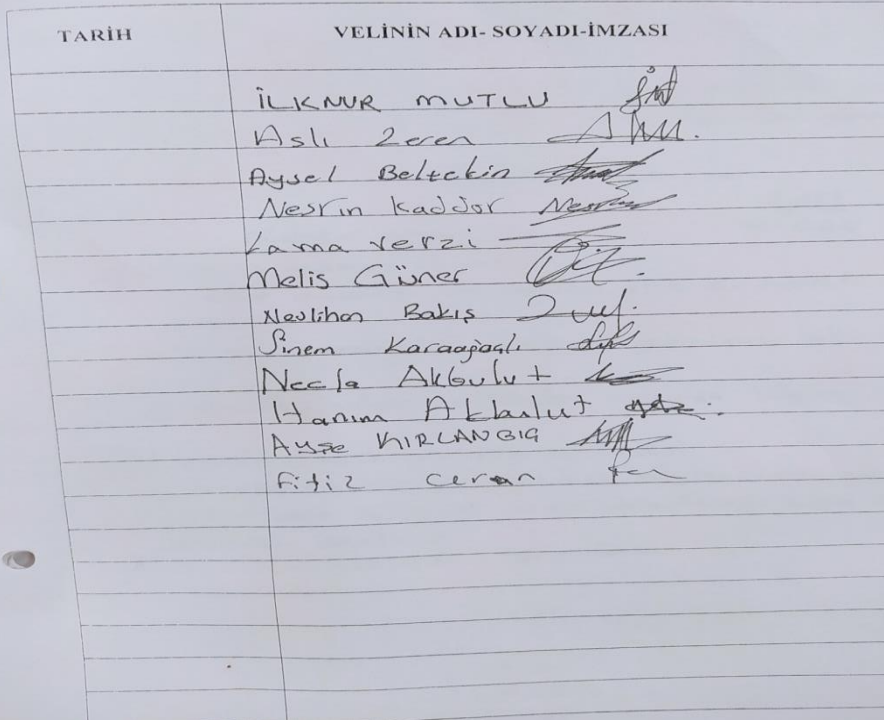 TARİH
VELİNİN ADI- SOYADI-İMZASI
İLKNUR MUTLU
Aslı Zeren
Aysel Beltekin
Nesrin Kaddor
Lama verzi
Melis Güner
Neslihan Bakış
Sinem Karaağaçlı
Necla Akbulut
Hanım Akbulut
Ayşe KIRLANGIÇ
Filiz Ceran